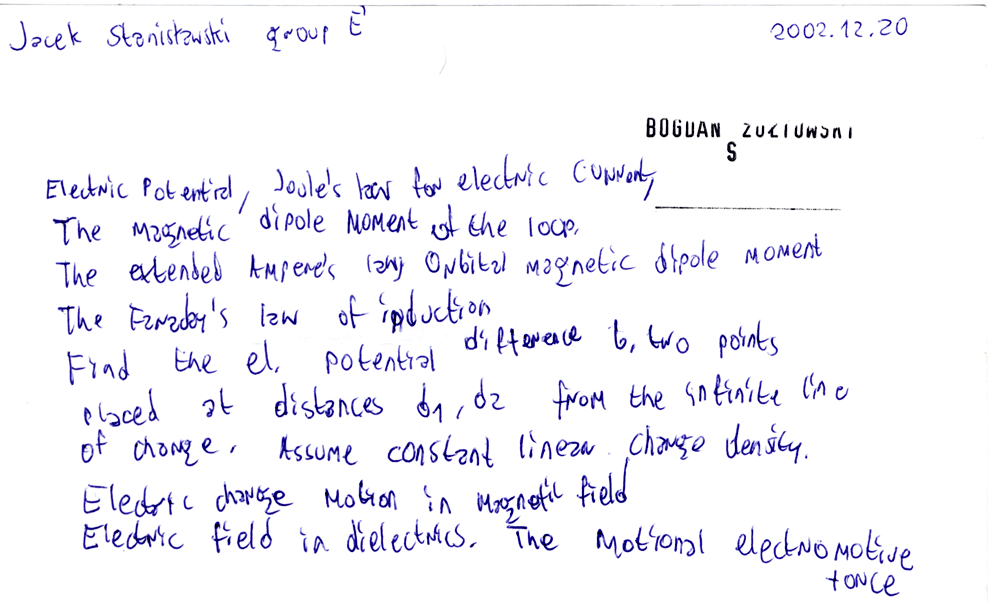 Jacek Stanisławski group E
2002.12.20
BOGDAN ŻÓŁTOWSKI
S
Electric Potential, Joule's law for electric current,
The magnetic dipole moment of the loop.
The extended Ampere's law, Orbital magnetic dipole moment
The Faraday's law of induction
Find the el. potential difference b, two points
placed at distances d1, d2 from the infinite line
of charge. Assume constant linear charge density.
Electric charge motion in magnetic field
Electric field in dielectrics. The motional electromotive
force